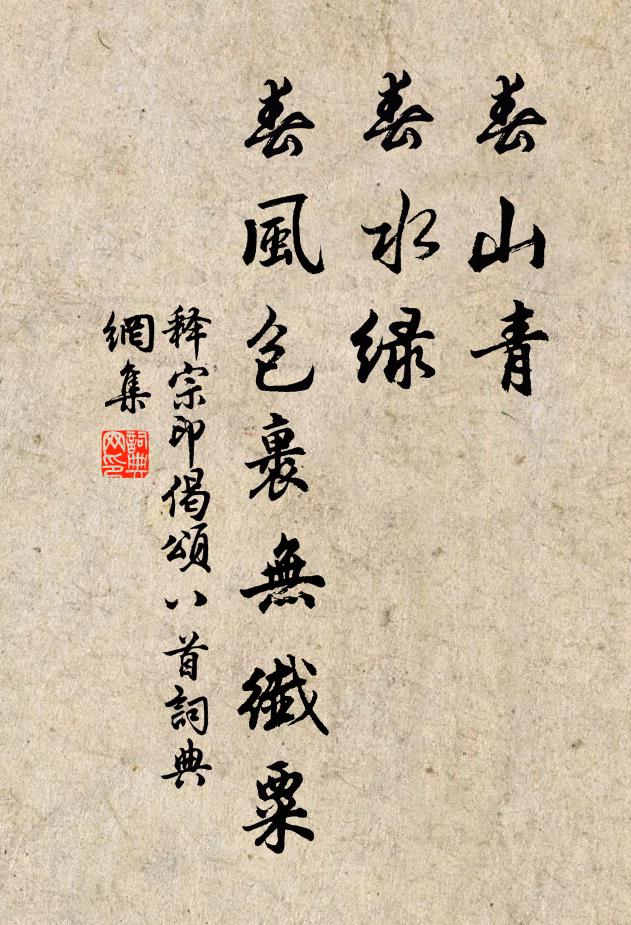 春山青
春水绿
春風包裹無纖粟
释宗印偈頌八首詞典
網集
詞典
网印